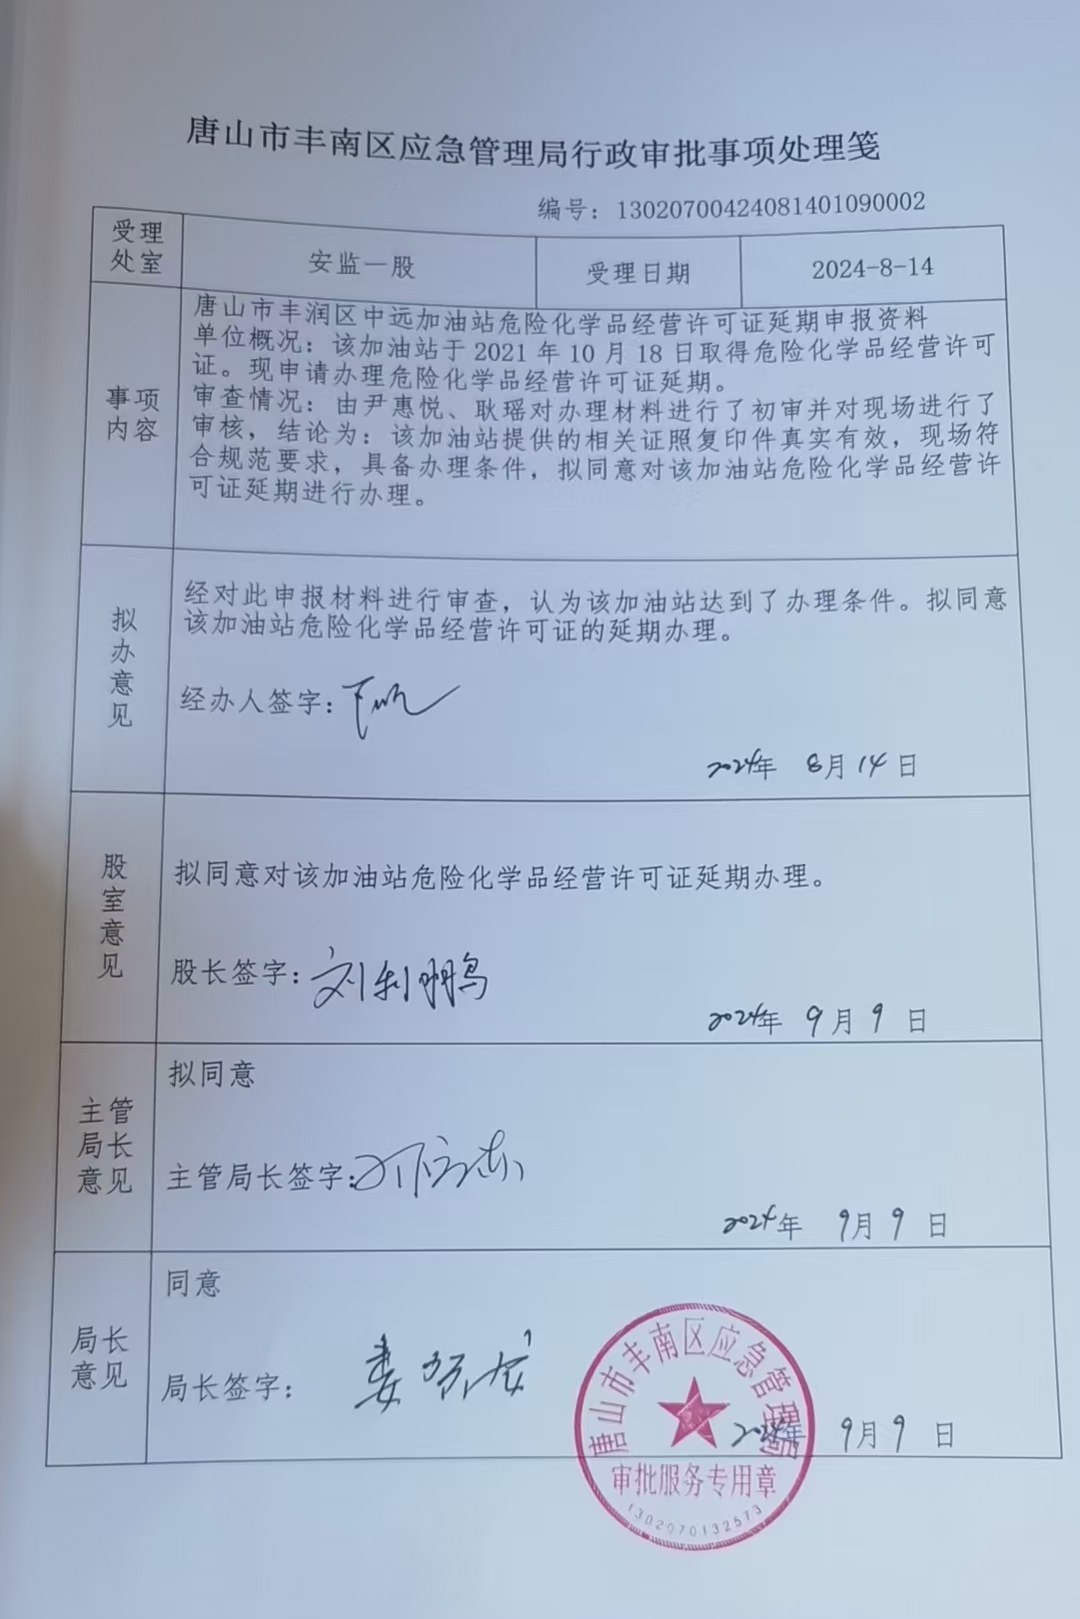 唐山市丰南区应急管理局行政审批事项处理笺
编号：13020700424081401090002
受理
处室
安监一股
受理日期
2024-8-14
事项
内容
唐山市丰润区中远加油站危险化学品经营许可证延期申报资料
单位概况：该加油站于 2021 年 10 月 18 日取得危险化学品经营许可
证。现申请办理危险化学品经营许可证延期。
审查情况：由尹惠悦、耿瑶对办理材料进行了初审并对现场进行了
审核，结论为：该加油站提供的相关证照复印件真实有效，现场符
合规范要求，具备办理条件，拟同意对该加油站危险化学品经营许
可证延期进行办理。
拟
办
意
见
经对此申报材料进行审查，认为该加油站达到了办理条件。拟同意
该加油站危险化学品经营许可证的延期办理。
经办人签字：
2024年 8月14日
股
室
意
见
拟同意对该加油站危险化学品经营许可证延期办理。
股长签字：刘利鹏
2024年 9月9日
主管
局长
意见
拟同意
主管局长签字：
2024年 9月9日
局长
意见
同意
局长签字：
2024年 9月9日
唐山市丰南区应急管理局
审批服务专用章
1302070132573